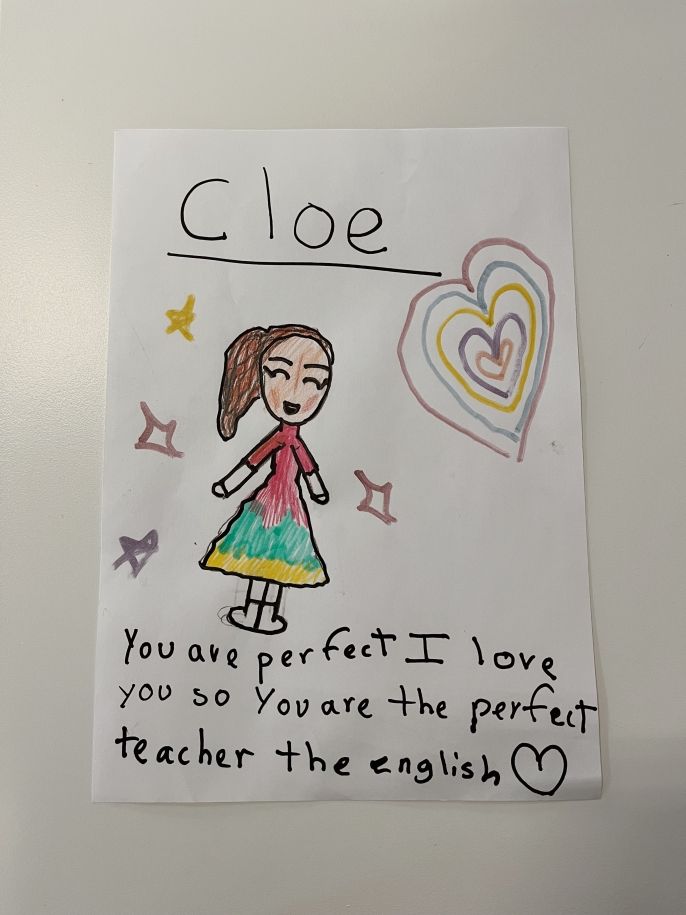 Cloe
You are perfect I love
you so You are the perfect
teacher the english